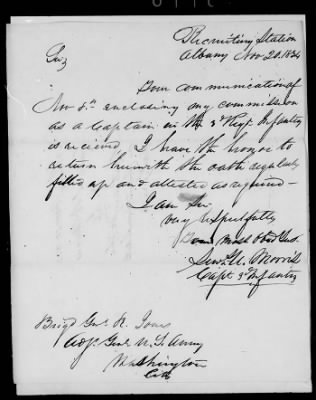 Recruiting Station
Albany Nov 20. 1834
Sir,
Your communication of
Nov 5th enclosing my commission
as a Captain in the 3d Regt. Infantry
is recieved. I have the honor to
return herewith the oath regularly
filled up and attested as required -
I am Sir
very respectfully
Your most obed Svt.
Morris
Capt 3d Infantry
Brigd Genl R. Jones
Adjt Genl U. S. Army
Washington
City